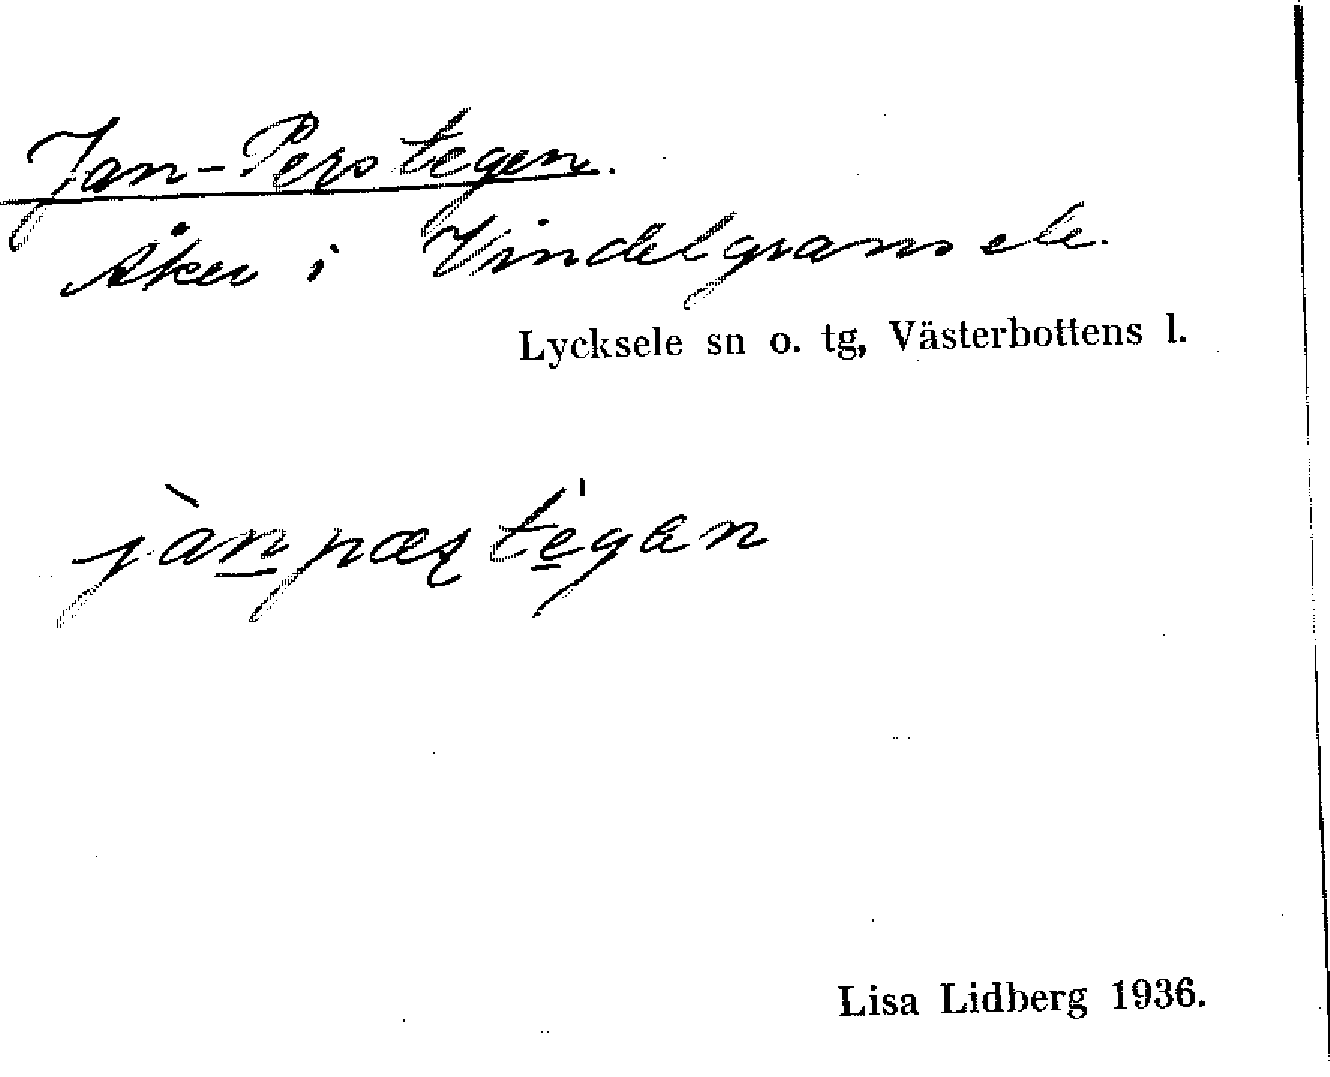 Jan-Perstegen.
Åker i Vindelgransele.
Lycksele sn o. tg, Västerbottens l.
jànpæʂte̠'gan
Lisa Lidberg 1936.